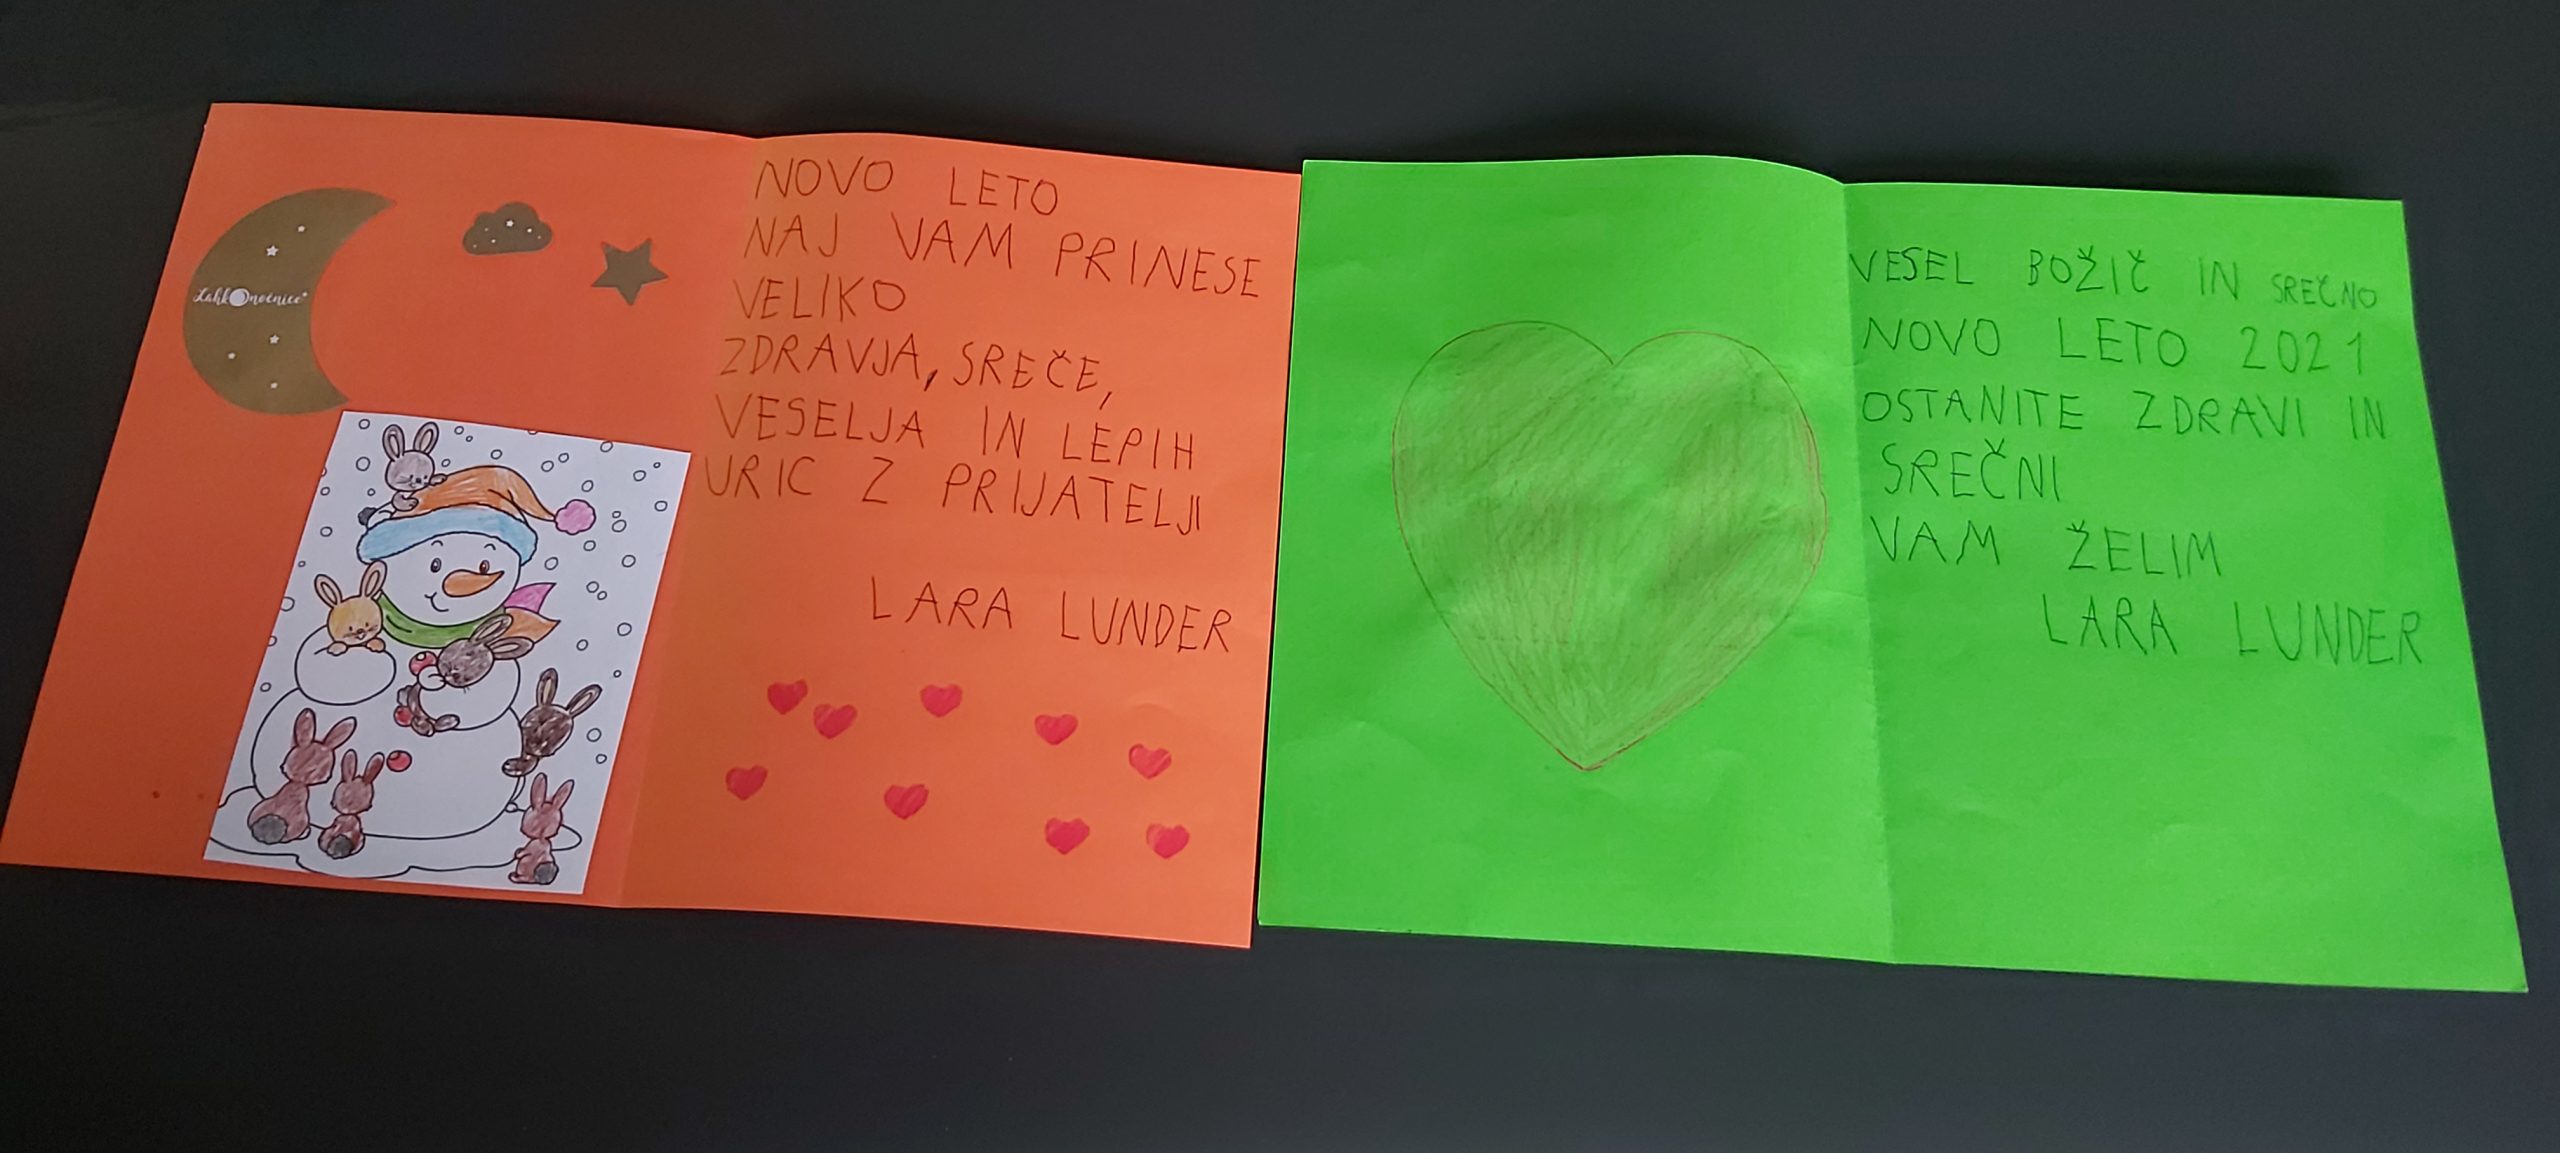 Lahkonočnice
NOVO LETO
NAJ VAM PRINESE
VELIKO
ZDRAVJA, SREČE,
VESELJA IN LEPIH
URIC Z PRIJATELJI
LARA LUNDER
VESEL BOŽIČ IN SREČNO
NOVO LETO 2021
OSTANITE ZDRAVI IN
SREČNI
VAM ŽELIM
LARA LUNDER